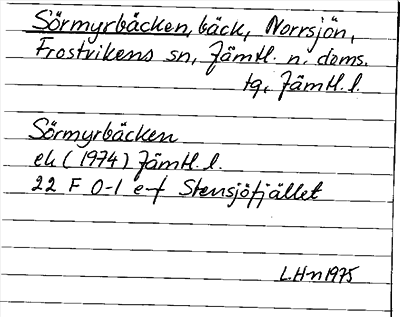 Sörmyrbäcken, bäck, Norrsjön,
Frostvikens sn, Jämtl. n. doms.
tg, Jämtl. l.
Sörmyrbäcken
ek (1974) Jämtl. l.
22 F 0-1 e-f Stensjöfjället
L.H-n 1975